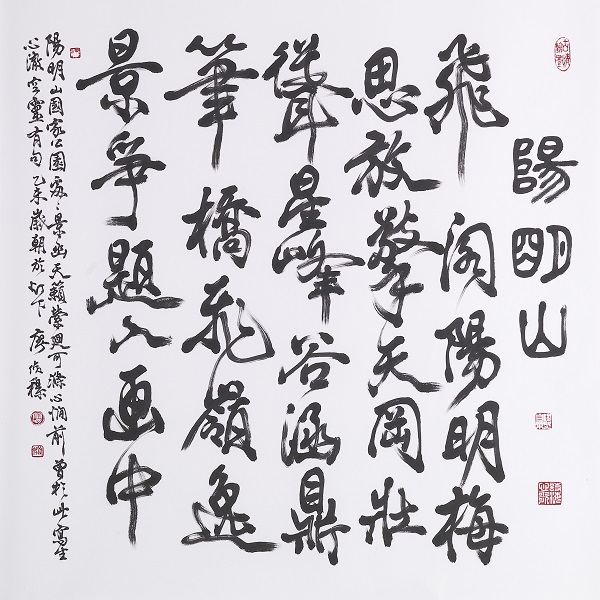 陽明山
飛阁陽明梅
思放擎天岡壯
聳星峰谷涵鼎
筆橋飛嶺逸
景爭題入画中
陽明山國家公園處、景幽天籟縈迴可滌心 前曾於此寫生
心澈空靈有句 乙未歲朝於灯下 廖俊穆